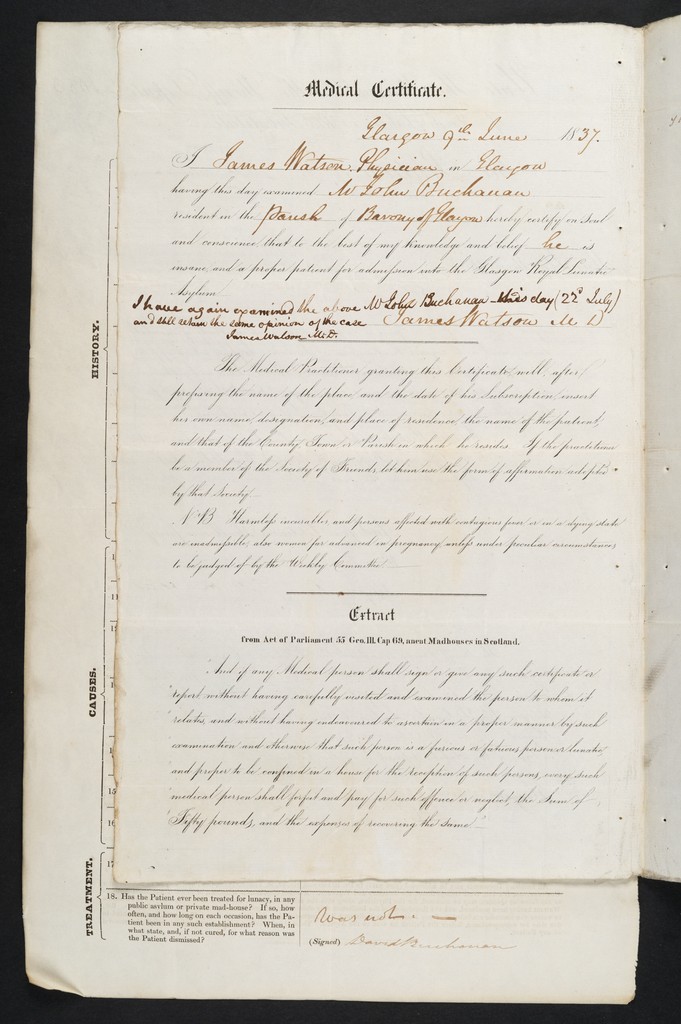 Medical Certificate.
Glasgow 9th June 1837.
I James Watson, Physician in Glasgow
having this day examined Mr John Buchanan
resident in the Parish of Barony of Glasgow hereby certify on soul
and conscience that to the best of my knowledge and belief he is
insane and a proper patient for admission into the Glasgow Royal Lunatic
Asylum.
James Watson M D
I have again examined the above Mr John Buchanan this day (22d July)
and still retain the same opinion of the case
James Watson M.D.
The Medical Practitioner granting this Certificate will, after
prefixing the name of the place, and the date of his Subscription, insert
his own name, designation, and place of residence, the name of the patient,
and that of the County, Town or Parish in which he resides. If the practitioner
be a member of the Society of Friends, let him use the form of affirmation adopted
by that Society.
N.B. Harmless incurables and persons affected with contagious fever or in a dying state
are inadmissible, also women far advanced in pregnancy, unless under peculiar circumstances,
to be judged of by the Weekly Committee.
Extract
from Act of Parliament 55 Geo. III. Cap 69, anent Madhouses in Scotland.
"And if any Medical person shall sign or give any such certificate or
"report without having carefully visited and examined the person to whom it
"relates, and without having endeavoured to ascertain in a proper manner by such
"examination and otherwise that such person is a furious or fatuous person or lunatic,
"and proper to be confined in a house for the reception of such persons, every such
"medical person shall forfeit and pay for such offence or neglect, the Sum of
"Fifty pounds, and the expenses of recovering the same"
HISTORY.
CAUSES.
TREATMENT.
1
11
12
15
16
17
18. Has the Patient ever been treated for lunacy, in any
public asylum or private mad-house? If so, how
often, and how long on each occasion, has the Pa-
tient been in any such establishment? When, in
what state, and, if not cured, for what reason was
the Patient dismissed?
Was not. —
(Signed) David Buchanan